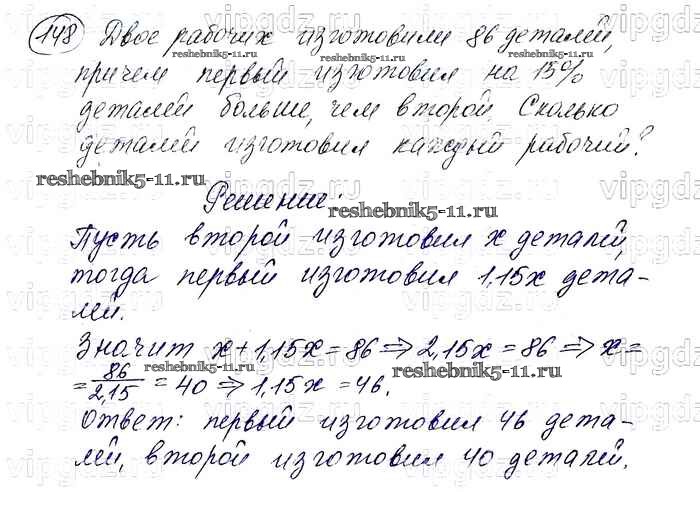 148 Двое рабочих изготовили 86 деталей,
причем первый изготовил на 15%
деталей больше, чем второй. Сколько
деталей изготовил каждый рабочий?
Решение:
Пусть второй изготовил x деталей,
тогда первый изготовил 1,15x дета-
лей.
Значит x + 1,15x = 86 ⇒ 2,15x = 86 ⇒ x =
= 86/2,15 = 40 ⇒ 1,15x = 46.
Ответ: первый изготовил 46 дета-
лей, второй изготовил 40 деталей.
reshebnik5-11.ru
reshebnik5-11.ru
reshebnik5-11.ru
reshebnik5-11.ru
reshebnik5-11.ru
reshebnik5-11.ru
vipgdz.ru